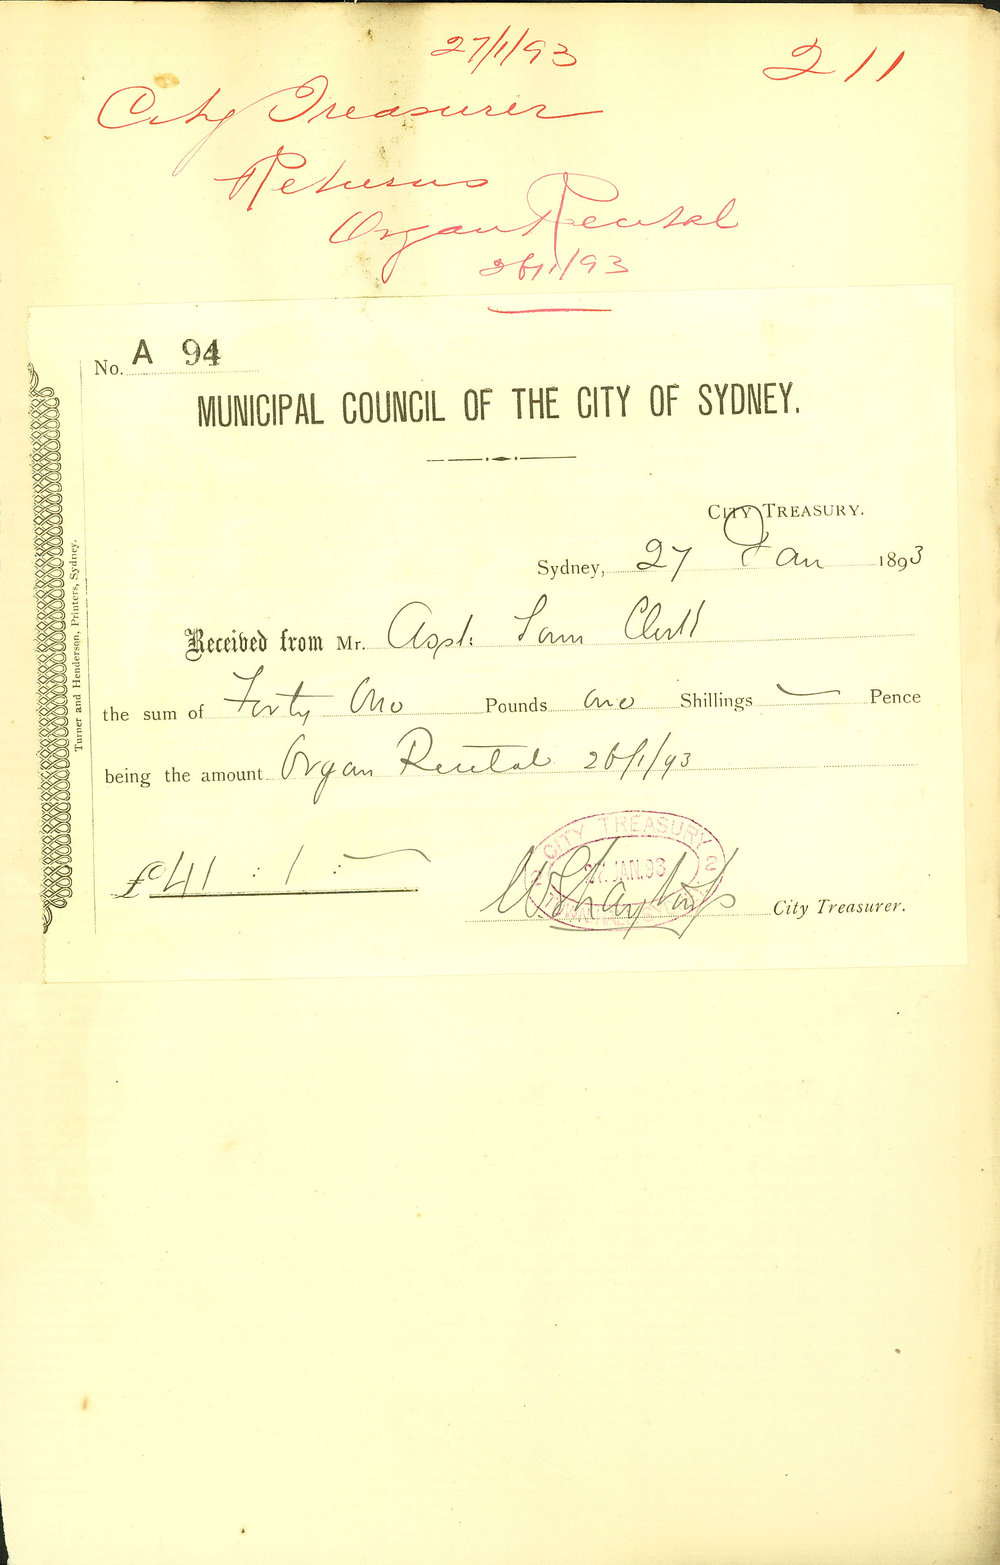 27/1/93
211
City Treasurer
Returns
Organ Recital
26/1/93
No. A 94
MUNICIPAL COUNCIL OF THE CITY OF SYDNEY.
CITY TREASURY.
Sydney, 27 Jan 1893
Received from Mr. Asst: Town Clerk
the sum of Forty One Pounds one Shillings — Pence
being the amount Organ Recital 26/1/93
£41 : 1 : —
CITY TREASURY
2 27. JAN. 93 2
TOWN
City Treasurer.
Turner and Henderson, Printers, Sydney.